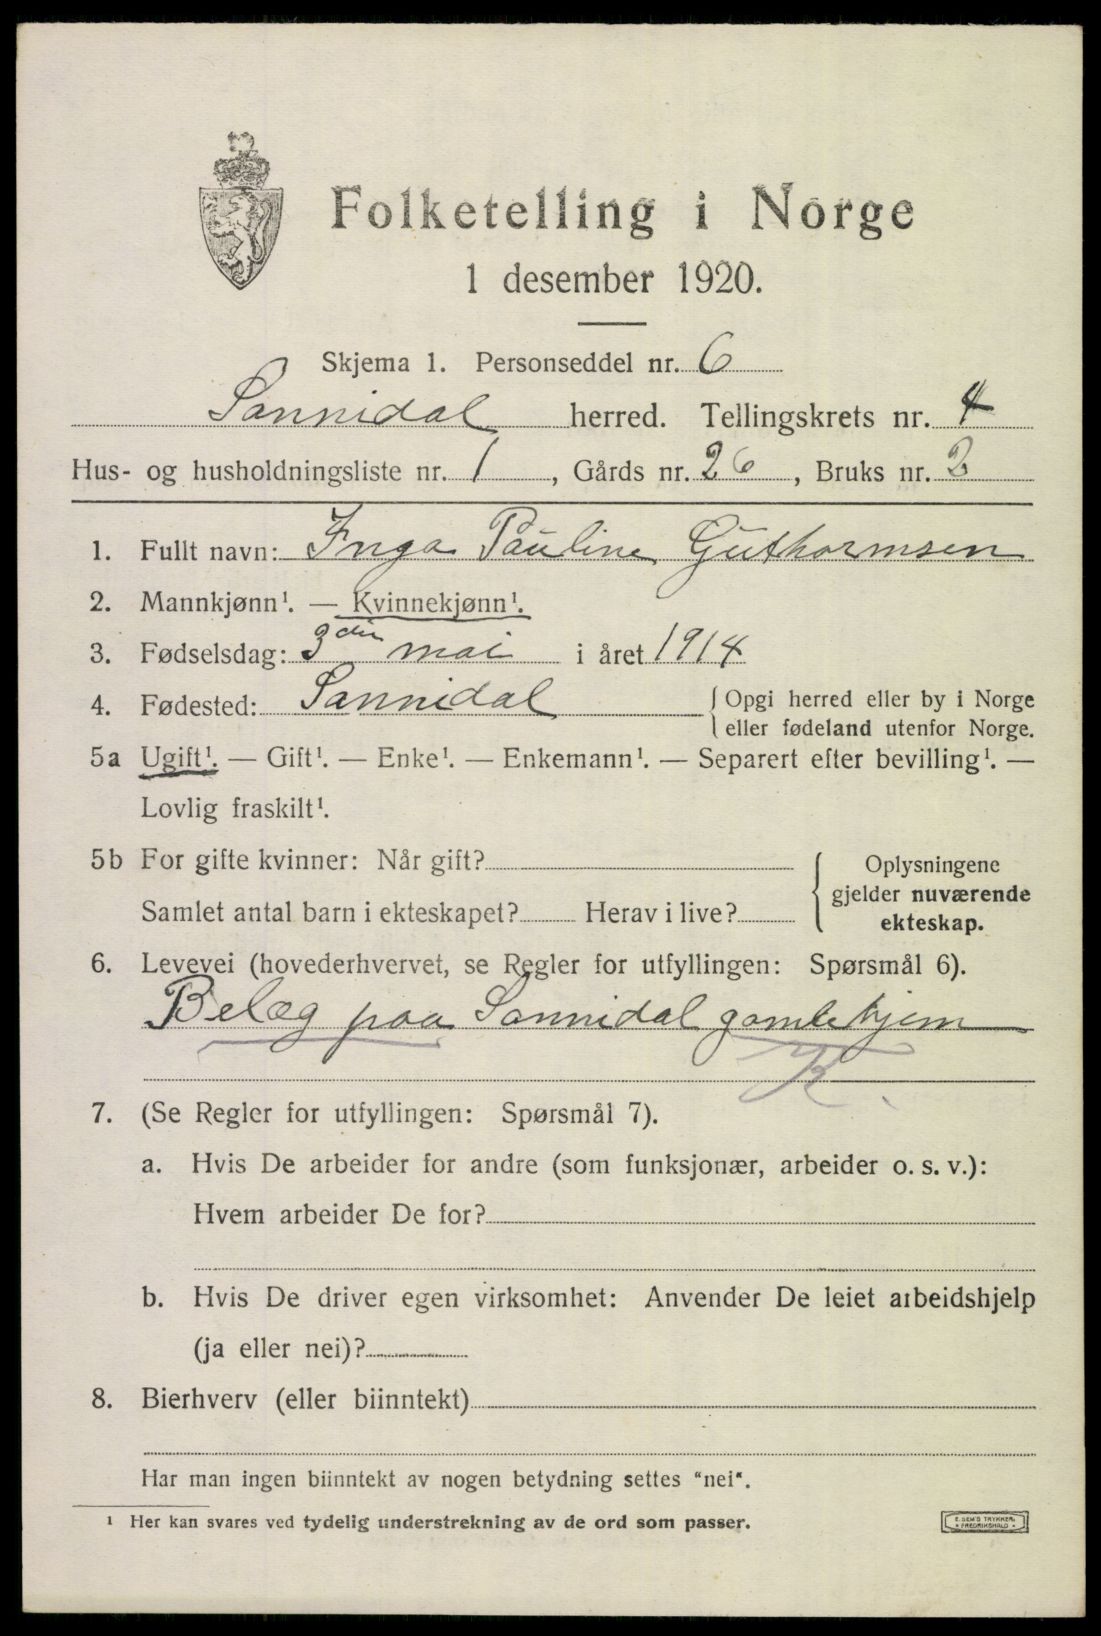 Folketelling i Norge
1 desember 1920.
Skjema 1. Personseddel nr. 6
Sannidal herred. Tellingskrets nr. 4
Hus- og husholdningsliste nr. 1, Gårds nr. 26, Bruks nr. 2
1. Fullt navn: Inga Pauline Guthormsen
2. Mannkjønn¹. — Kvinnekjønn¹.
3. Fødselsdag: 3die mai i året 1914
4. Fødested: Sannidal { Opgi herred eller by i Norge
eller fødeland utenfor Norge.
5a Ugift¹. — Gift¹. — Enke¹. — Enkemann¹. — Separert efter bevilling¹. —
Lovlig fraskilt¹.
5b For gifte kvinner: Når gift?
Samlet antal barn i ekteskapet? Herav i live?
{ Oplysningene
gjelder nuværende
ekteskap.
6. Levevei (hovederhvervet, se Regler for utfyllingen: Spørsmål 6).
Belæg paa Sannidal gamlehjem
K.
7. (Se Regler for utfyllingen: Spørsmål 7).
a. Hvis De arbeider for andre (som funksjonær, arbeider o. s. v.):
Hvem arbeider De for?
b. Hvis De driver egen virksomhet: Anvender De leiet arbeidshjelp
(ja eller nei)?
8. Bierhverv (eller biinntekt)
Har man ingen biinntekt av nogen betydning settes "nei".
¹ Her kan svares ved tydelig understrekning av de ord som passer.
E. SEM'S TRYKKERI
• FREDRIKSHALD •